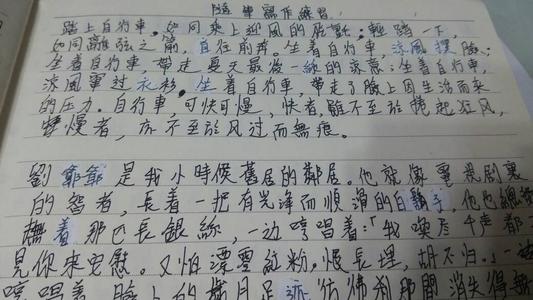 隨筆寫作練習
踏上自行車,如同乘上迎風的,輕踏一下,
如同離弦之箭,自往前奔。坐着自行車,涼風撲臉;
坐着自行車,带走夏天最後一絲的凉意;坐着自行車,
凉風穿过衣衫。坐着自行車,带走了臉上因生活而來
的压力。自行車,可快可慢,快者,雖不至於捲起狂风,
慢者,亦不至於风过而無痕。
劉爺爺是我小時候舊居的鄰居。他就像電視剧裏
的智者,長着一把有光泽而順滑的白鬍子,他也總
撫着那巴長銀絲,一边哼唱着:「我喚左千声都
見你来安慰。又怕漂零紅粉,恨長埋,胡不归。」一
哼唱着,臉上的歲月足迹彷彿那間消失得無